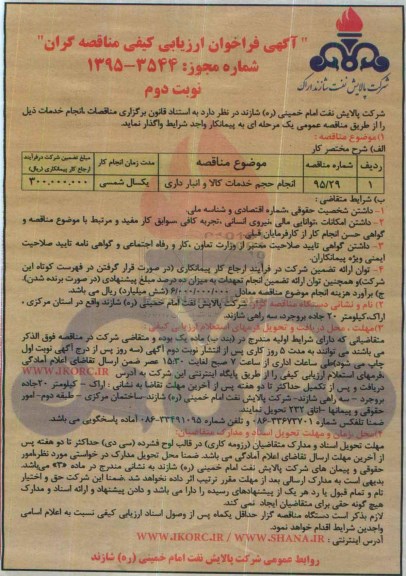 " آگهی فراخوان ارزیابی کیفی مناقصه گران"
شماره مجوز: ۳۵۴۴-۱۳۹۵
نوبت دوم
شرکت پالایش نفت شازند اراک
شرکت پالایش نفت امام خمینی (ره) شازند در نظر دارد به استناد قانون برگزاری مناقصات ،انجام خدمات ذیل
را از طریق مناقصه عمومی یک مرحله ای به پیمانکار واجد شرایط واگذار نماید.
۱)موضوع مناقصه :
الف) شرح مختصر کار
ردیف شماره مناقصه موضوع مناقصه مدت زمان انجام کار مبلغ تضمین شرکت درفرآیند ارجاع کار پیمانکاری (ریال)
۱ ۹۵/۲۹ انجام حجم خدمات کالا و انبار داری یکسال شمسی ۳۰۰.۰۰۰.۰۰۰
ب) شرایط متقاضی :
۱- داشتن شخصیت حقوقی ،شماره اقتصادی و شناسه ملی.
۲- داشتن امکانات ،توانایی مالی ،نیروی انسانی ،تجربه کافی ،سوابق کار مفید و مرتبط با موضوع مناقصه و
گواهی حسن انجام کار از کارفرمایان قبلی.
۳- داشتن گواهی تایید صلاحیت معتبر از وزارت تعاون ،کار و رفاه اجتماعی و گواهی نامه تایید صلاحیت
ایمنی ویژه پیمانکاران.
۴- توان ارائه تضمین شرکت در فرآیند ارجاع کار پیمانکاری (در صورت قرار گرفتن در فهرست کوتاه این
شرکت)و همچنین توان ارائه تضمین انجام تعهدات به میزان ده درصد مبلغ پیشنهادی (در صورت برنده شدن).
ج) برآورد هزینه انجام موضوع مناقصه معادل ۶/۰۰۰/۰۰۰/۰۰۰ (شش میلیارد) ریال می باشد.
۲) نام و نشانی دستگاه مناقصه گزار:شرکت پالایش نفت امام خمینی (ره) شازند واقع در استان مرکزی ،
اراک،کیلومتر ۲۰ جاده بروجرد، سه راهی شازند.
۳)مهلت ، محل دریافت و تحویل فرمهای استعلام ارزیابی کیفی :
متقاضیانی که دارای شرایط اولیه مندرج در (بند ب) ماده یک بوده و متقاضی شرکت در مناقصه فوق الذکر
می باشند می توانند به مدت ۵ روز کاری پس از انتشار نوبت دوم آگهی (سه روز پس از درج آگهی نوبت اول
چاپ می شود)طی ساعات اداری از ساعت ۷ صبح لغایت ۱۵،۳۰ عصر ضمن ارسال تقاضای اعلام آمادگی
،فرمهای استعلام ارزیابی کیفی را از طریق پایگاه اینترنتی این شرکت به آدرس WWW.IKORC.IR
دریافت و پس از تکمیل حداکثر تا دو هفته پس از آخرین مهلت تقاضا به نشانی : اراک – کیلومتر ۲۰جاده
بروجرد – سه راهی شازند- شرکت پالایش نفت امام خمینی (ره) شازند-ساختمان مرکزی – طبقه دوم-امور
حقوقی و پیمانها -اتاق ۲۳۲ تحویل نمایند.
ضمنا تلفکس شماره ۳۳۶۷۳۷۰۱-۰۸۶ و تلفن شماره ۳۳۴۹۱۰۹۵-۰۸۶ آماده پاسخگویی می باشد.
۴)محل ،زمان و مهلت تحویل اسناد و مدارک متقاضیان :
مهلت تحویل اسناد ومدارک متقاضیان (رزومه کاری) در قالب لوح فشرده (سی دی) حداکثر تا دو هفته پس
از آخرین مهلت ارسال تقاضای اعلام آمادگی می باشد. ضمنا محل تحویل مدارک در خواستی مورد نظر،امور
حقوقی و پیمان های شرکت پالایش نفت امام خمینی (ره) شازند به نشانی مندرج در ماده «۳» می‌باشد.
بدیهی است به مدارک ارسالی بعد از مهلت مقرر ترتیب اثر داده نخواهد شد.ضمنا این شرکت حق و اختیار
تام و تمام قبول یا رد هر یک از پیشنهادهای رسیده را دارا می باشد و دادن پیشنهاد و ارائه اسناد و مدارک
هیچ گونه حقی برای متقاضیان ایجاد نمی کند.
لازم بذکر است دستگاه مناقصه گزار حداقل یکماه پس از وصول اسناد ارزیابی کیفی نسبت به اعلام اسامی
واجدین شرایط اقدام خواهد نمود.
آدرس اینترنتی : WWW.IKORC.IR / WWW.SHANA.IR
روابط عمومی شرکت پالایش نفت امام خمینی (ره) شازند